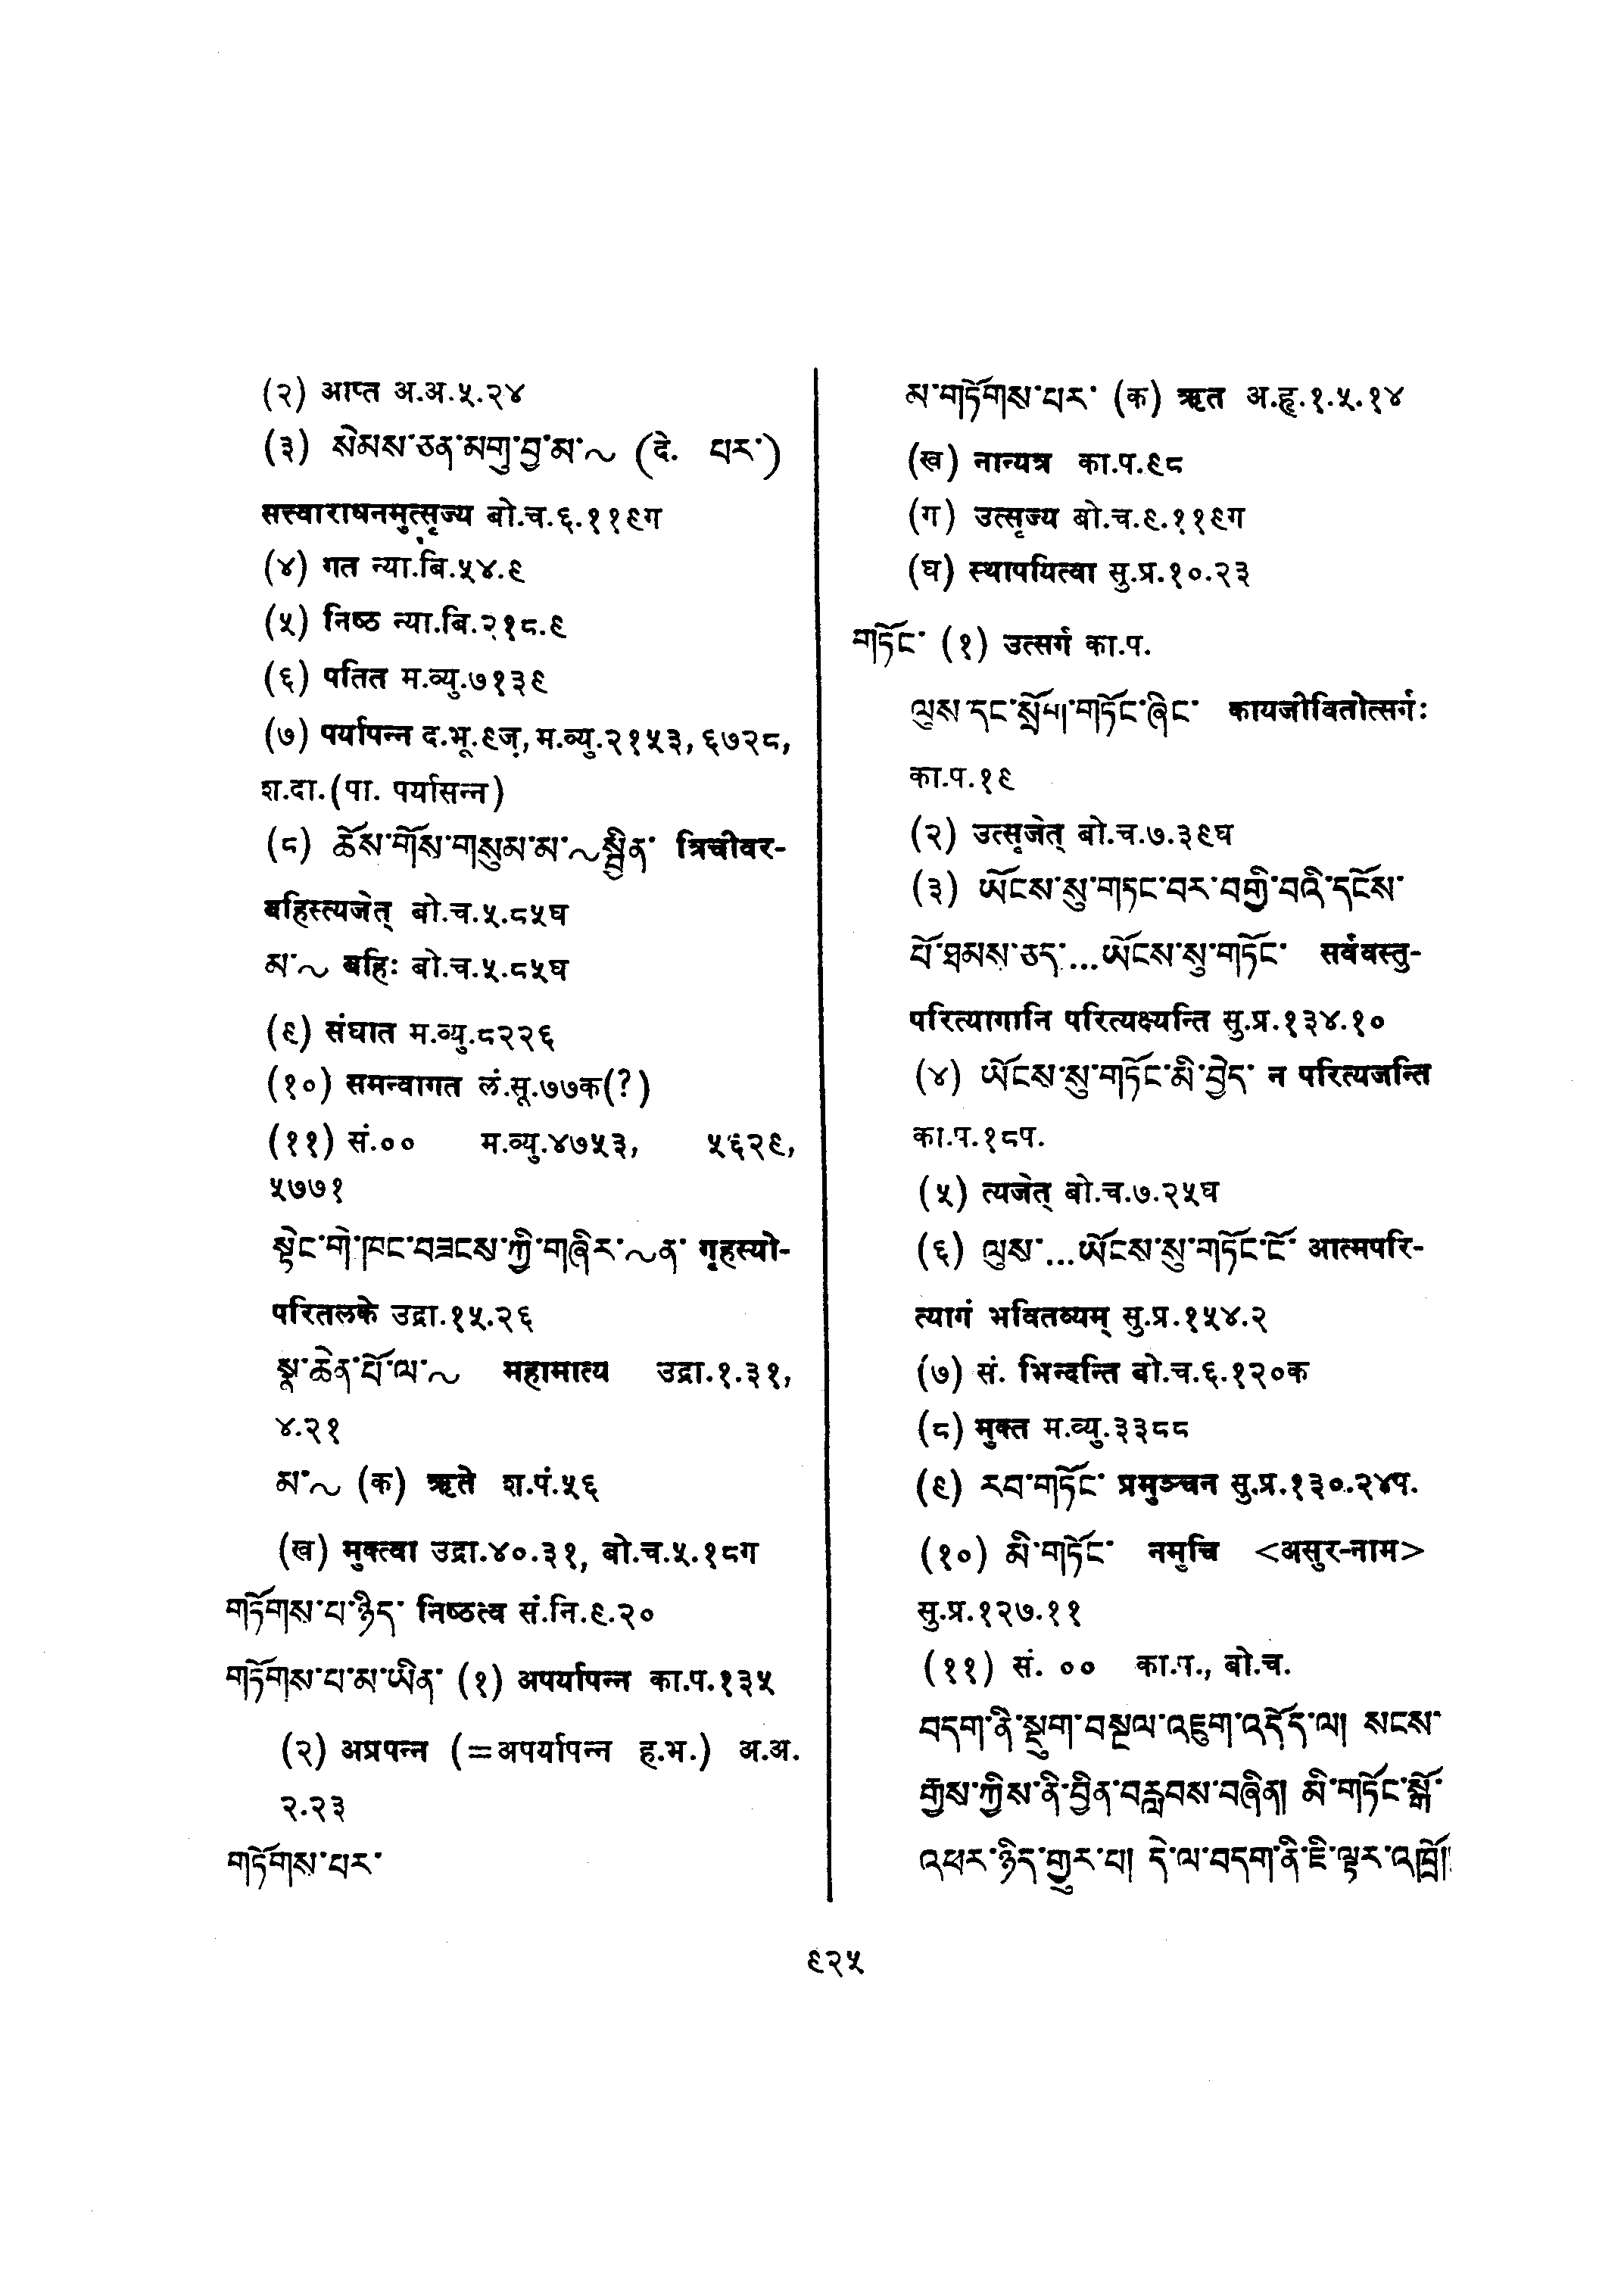 (२) आप्त अ.अ.५.२४
(३) སེམས་ཅན་མགུ་བྱ་མ་~ (दे. པར་)
सत्त्वाराधनमुत्सृज्य बो.च.६.११९ग
(४) गत न्या.बि.५४.९
(५) निष्ठ न्या.बि.२१८.९
(६) पतित म.व्यु.७१३९
(७) पर्यापन्न द.भू.९ज़, म.व्यु.२१५३, ६७२८,
श.दा.(पा. पर्यासन्न)
(८) ཆོས་གོས་གསུམ་མ་~སྦྱིན་ त्रिचीवर-
बहिस्त्यजेत् बो.च.५.८५घ
མ་~ बहिः बो.च.५.८५घ
(९) संघात म.व्यु.८२२६
(१०) समन्वागत लं.सू.७७क(?)
(११) सं.०० म.व्यु.४७५३, ५६२९,
५७७१
སྟེང་གེ་ཁང་བཟངས་ཀྱི་གཞིར་~ན་ गृहस्यो-
परितलके उद्रा.१५.२६
སྣ་ཆེན་པོ་ལ་~ महामात्य उद्रा.१.३१,
४.२१
མ་~ (क) ऋते श.पं.५६
(ख) मुक्त्वा उद्रा.४०.३१, बो.च.५.१८ग
གཏོགས་པ་ཉིད་ निष्ठत्व सं.नि.९.२०
གཏོགས་པ་མ་ཡིན་ (१) अपर्यापन्न का.प.१३५
(२) अप्रपन्न (=अपर्यापन्न ह.भ.) अ.अ.
२.२३
གཏོགས་པར་
མ་གཏོགས་པར་ (क) ऋत अ.हृ.१.५.१४
(ख) नान्यत्र का.प.९८
(ग) उत्सृज्य बो.च.९.११९ग
(घ) स्थापयित्वा सु.प्र.१०.२३
གཏོང་ (१) उत्सर्ग का.प.
ལུས་དང་སྲོག་གཏོང་ཞིང་ कायजीवितोत्सर्गः
का.प.१९
(२) उत्सृजेत् बो.च.७.३९घ
(३) ཡོངས་སུ་གཏང་བར་བགྱི་བའི་དངོས་
པོ་ཐམས་ཅད་...ཡོངས་སུ་གཏོང་ सर्ववस्तु-
परित्यागानि परित्यक्ष्यन्ति सु.प्र.१३४.१०
(४) ཡོངས་སུ་གཏོང་མི་བྱེད་ न परित्यजन्ति
का.प.१८प.
(५) त्यजेत् बो.च.७.२५घ
(६) ལུས་...ཡོངས་སུ་གཏོང་ངོ་ आत्मपरि-
त्यागं भवितव्यम् सु.प्र.१५४.२
(७) सं. भिन्दन्ति बो.च.६.१२०क
(८) मुक्त म.व्यु.३३८८
(९) རབ་གཏོང་ प्रमुञ्चन सु.प्र.१३०.२४प.
(१०) མི་གཏོང་ नमुचि <असुर-नाम>
सु.प्र.१२७.११
(११) सं. ०० का.प., बो.च.
བདག་ནི་སྡུག་བསྔལ་འཇུག་འདོད་ལ། སངས་
རྒྱས་ཀྱིས་ནི་བྱིན་བརླབས་བཞིན། མི་གཏོང་སྒོ་
འཕར་ཉིད་གྱུར་པ། དེ་ལ་བདག་ནི་ཇི་ལྟར་འཁྲོ།
९२५